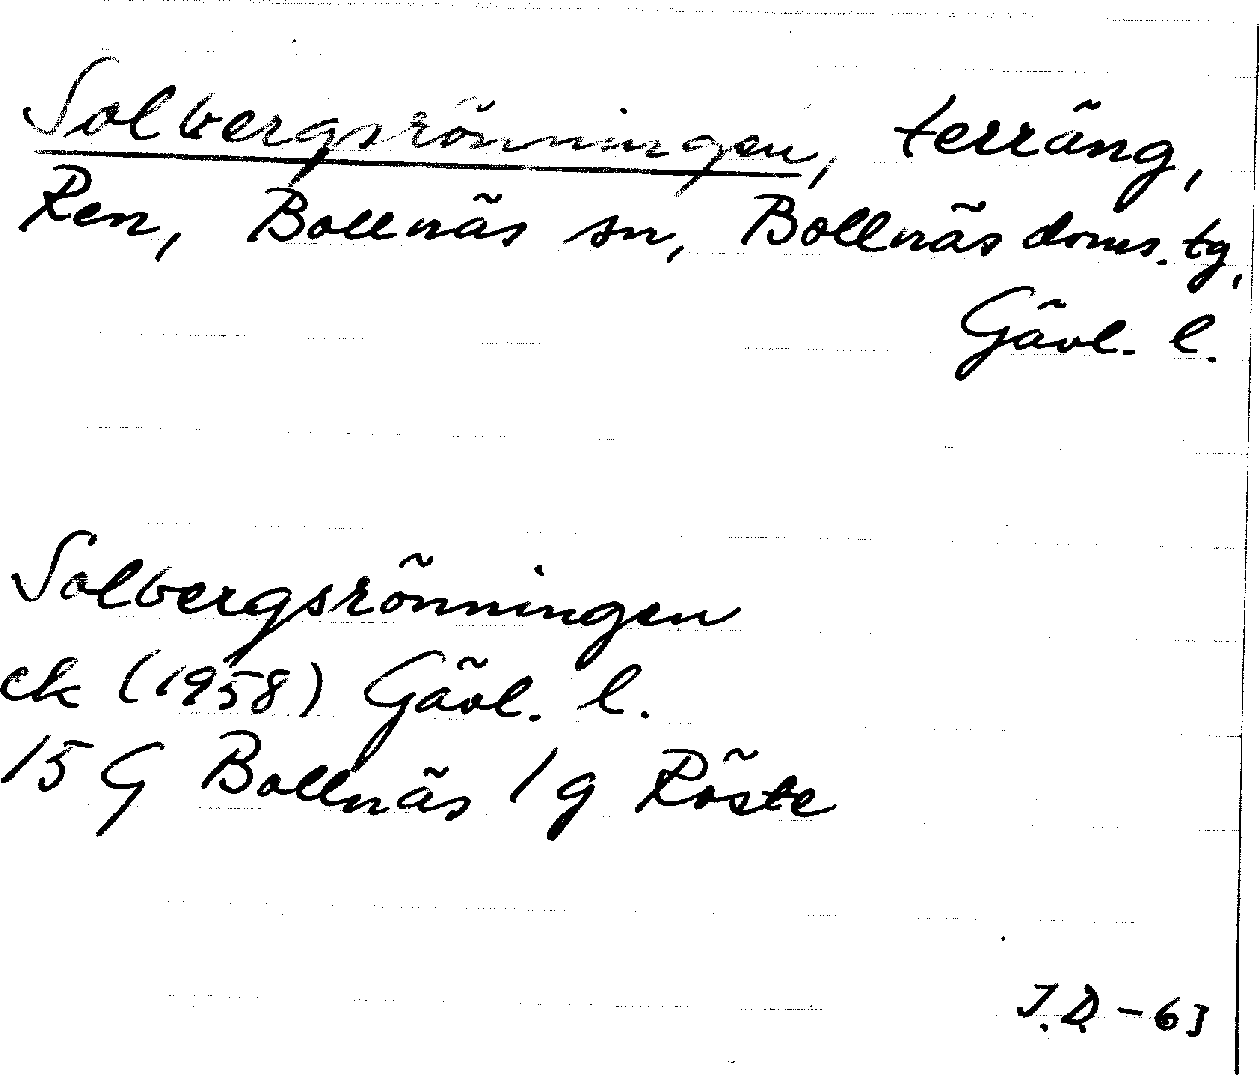 Solbergsrönningen, terräng,
Ren, Bollnäs sn, Bollnäs doms. tg,
Gävl. l.
Solbergsrönningen
ek (1958) Gävl. l.
15 G Bollnäs 1 g Röste
J.D. - 63